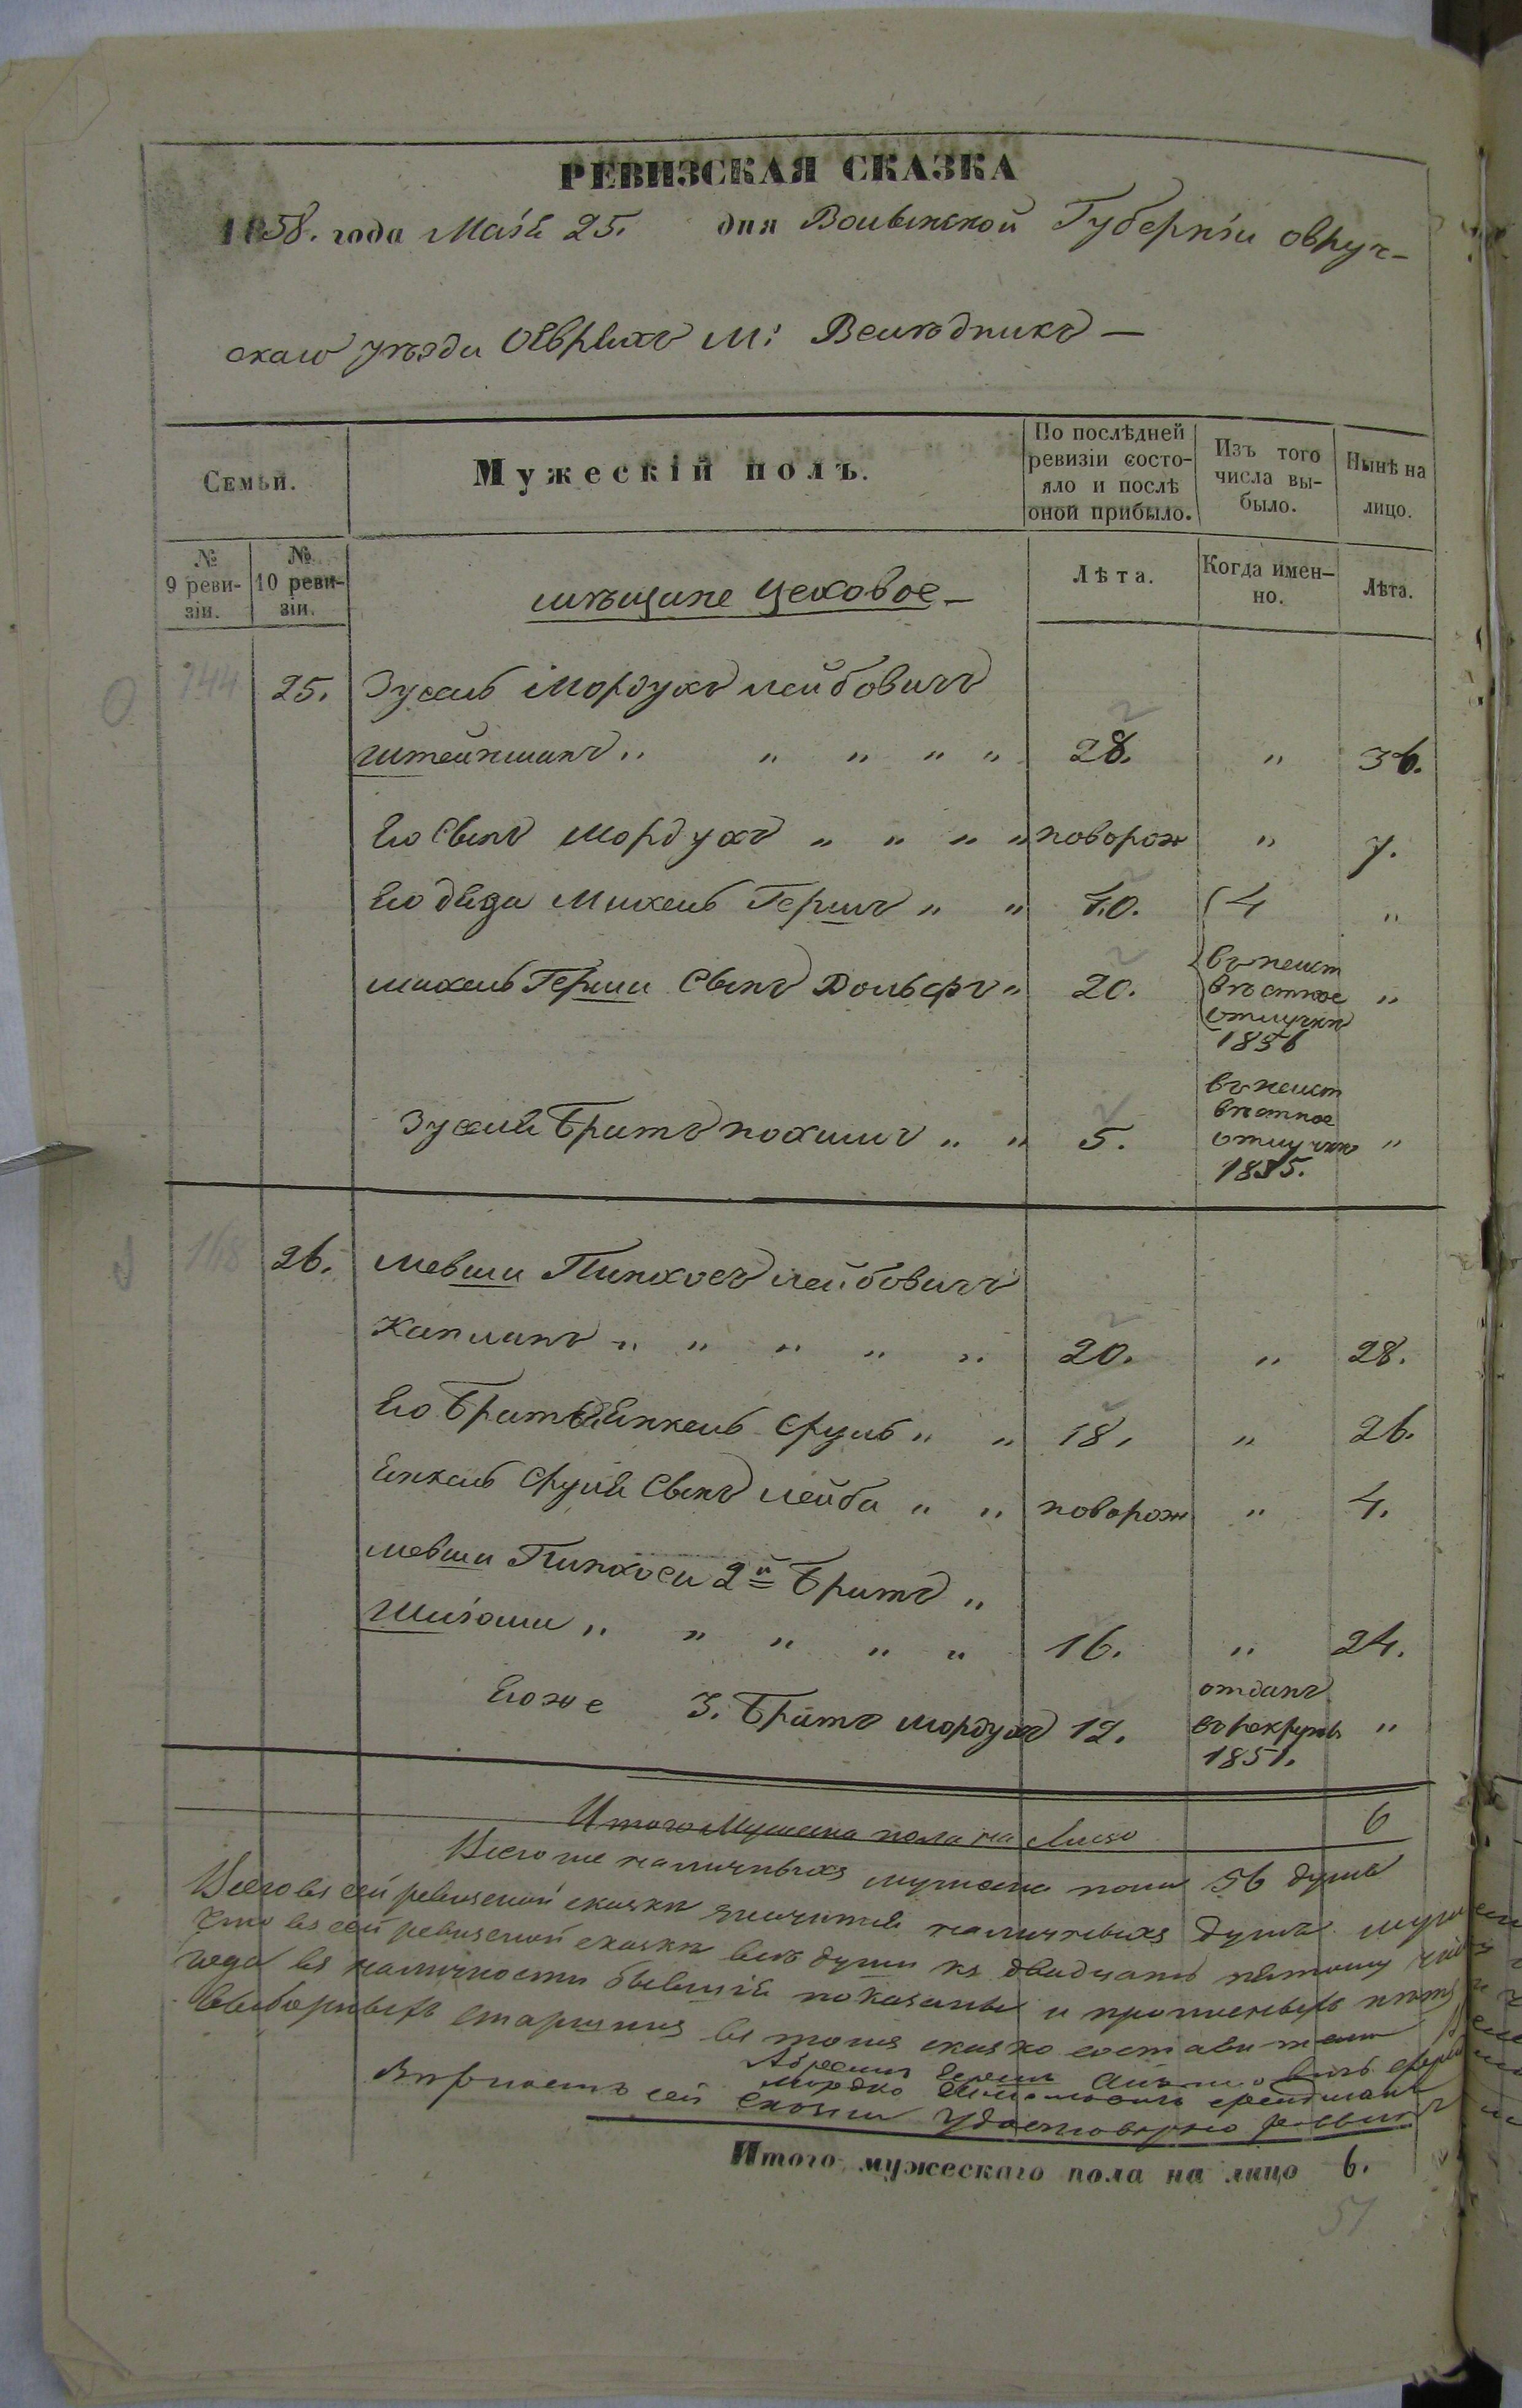 РЕВИЗСКАЯ СКАЗКА
1858. года Маія 25. дня Волынской Губерніи овруч-
скаго уѣзда О Евреяхъ М: Велѣдникъ —
Семьи.
Мужескій полъ.
По послѣдней ревизіи состо-яло и послѣ оной прибыло.
Изъ того числа вы-было.
Нынѣ на лицо.
№ 9 реви-зіи.
№ 10 реви-зіи.
мѣщане Цеховое —
Лѣта.
Когда имен-но.
Лѣта.
144 25. Зусель Мордухъ Лейбовичъ
Штейнманъ „ „ „ „ „ 28. „ 36.
Его Сынъ Мордухъ „ „ „ „ новорож „ 7.
Его дядя Михель Гершъ „ „ 40. 4 „
Михель Герша Сынъ Вольфъ „ 20. въ неизвѣстное отлучкѣ 1856 „
Зуселя Братъ нохимъ „ „ 5. въ неизвѣстное отлучкѣ 1855. „
168 26. Мевша Пинхосъ Лейбовичъ
Капланъ „ „ „ „ „ 20. „ 28.
Его Братъ Янкель Сруль „ „ 18. „ 26.
Янкель Сруля Сынъ Лейба „ „ новорож „ 4.
Мевша Пинхоса 2й Братъ „
Шигоша „ „ „ „ „ 16. „ 24.
Его же 3. Братъ Мордухъ 12. отданъ въ рекруты 1851. „
Итого Мужеска пола на Лицо 6
Всего же наличныхъ мужеска пола 56 душъ
Всего въ сей ревизской сказкѣ значится наличныхъ душъ
Что въ сей ревизской сказкѣ всѣ души къ двадцать пятому
года въ наличности бывшія показаны и прописныхъ нѣтъ
Выборныхъ старшина въ томъ сказко составители
Мордко
Вѣрность сей сказки удостовѣряю
Итого мужескаго пола на лицо 6.
51